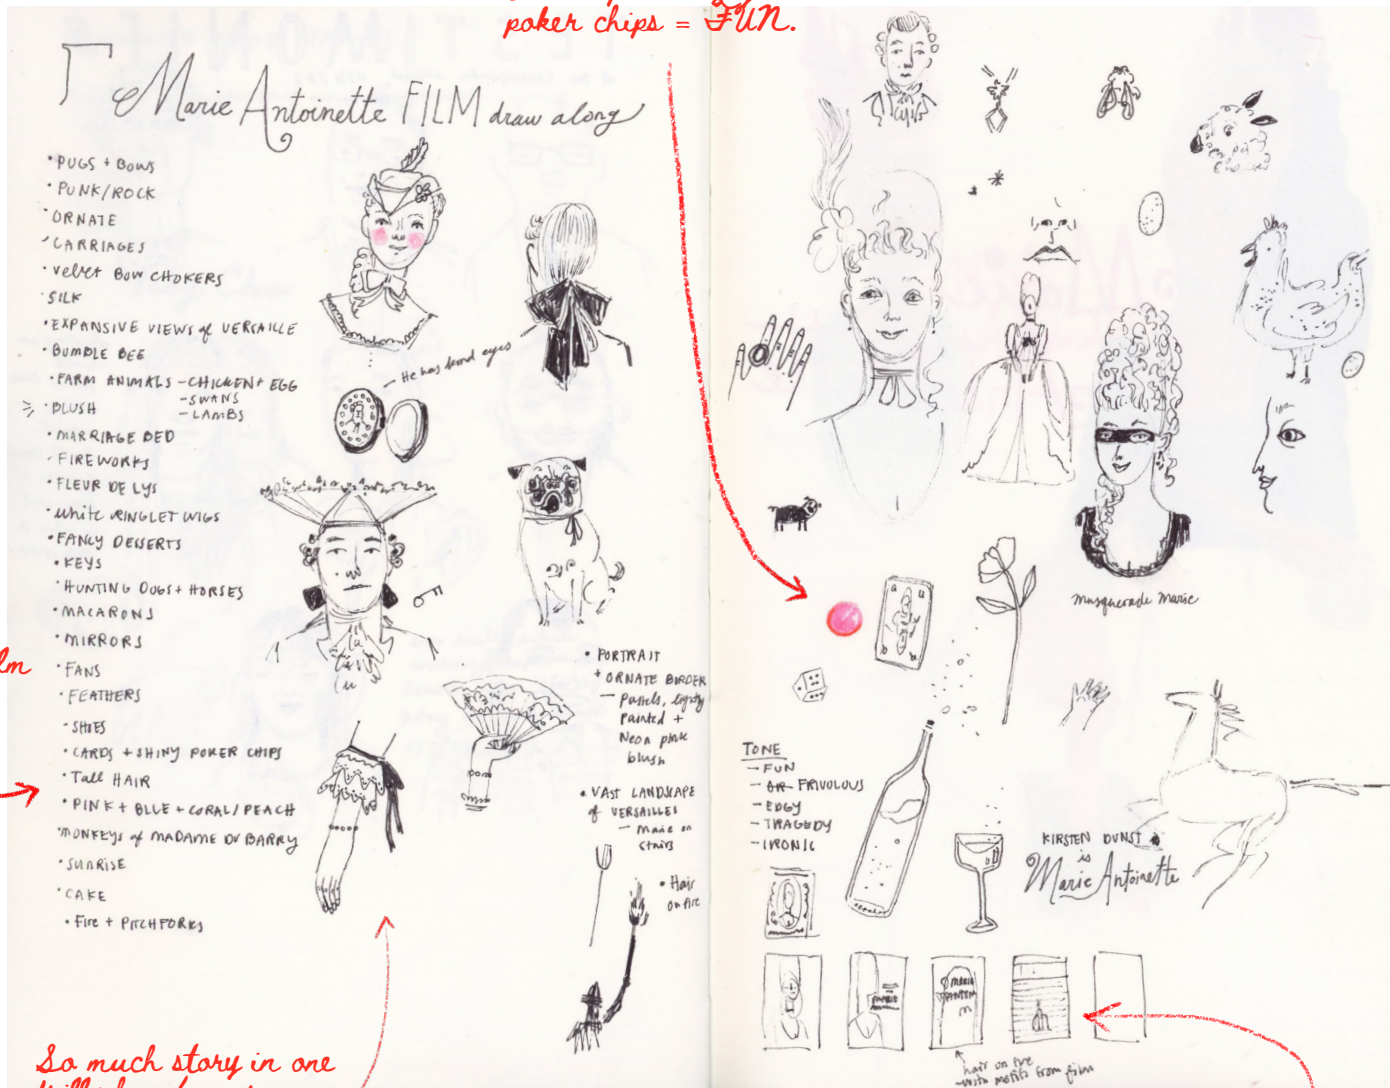 poker chips = FUN.
Marie Antoinette FILM draw along
• PUGS + BOWS
• PUNK/ROCK
• ORNATE
• CARRIAGES
• Velvet BOW CHOKERS
• SILK
• EXPANSIVE VIEWS of VERSAILLE
• BUMBLE BEE
• FARM ANIMALS - CHICKEN + EGG
- SWANS
- LAMBS
• BLUSH
• MARRIAGE BED
• FIREWORKS
• FLEUR DE LYS
• white RINGLET WIGS
• FANCY DESSERTS
• KEYS
• HUNTING DOGS + HORSES
• MACARONS
• MIRRORS
• FANS
• FEATHERS
• SHOES
• CARDS + SHINY POKER CHIPS
• Tall HAIR
• PINK + BLUE + CORAL/PEACH
• MONKEYS of MADAME DU BARRY
• SUNRISE
• CAKE
• Fire + PITCHFORKS
He has kind eyes
• PORTRAIT
+ ORNATE BORDER
- pastels, lightly
painted +
Neon pink
blush
• VAST LANDSCAPE
of VERSAILLES
- Marie on
stairs
• Hair
on fire
So much story in one
masquerade Marie
TONE
- FUN
- OR FRIVOLOUS
- EDGY
- TRAGEDY
- IRONIC
KIRSTEN DUNST
is
Marie Antoinette
MARIE
MARIE
hair on fire
with motifs from film